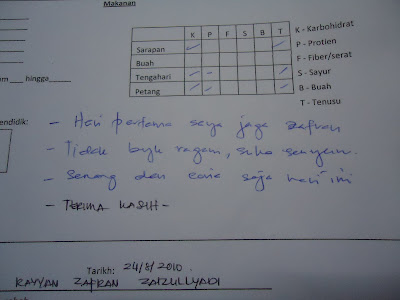 Makanan
K P F S B T
K - Karbohidrat
Sarapan
P - Protien
Buah
F - Fiber/serat
Tengahari
S - Sayur
Petang
B - Buah
T - Tenusu
hingga
endidik:
- Hari pertama saya jaga Zafran
- Tidak byk ragam, suka senyum.
- Senang dan ceria saja hari ini
- TERIMA KASIH -
Tarikh: 24/8/2010
RAYYAN ZAFRAN ZAIZULLYADI